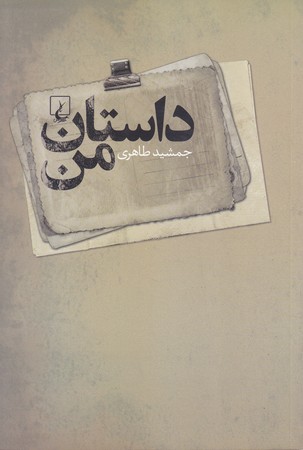 داستان
من
جمشید طاهری